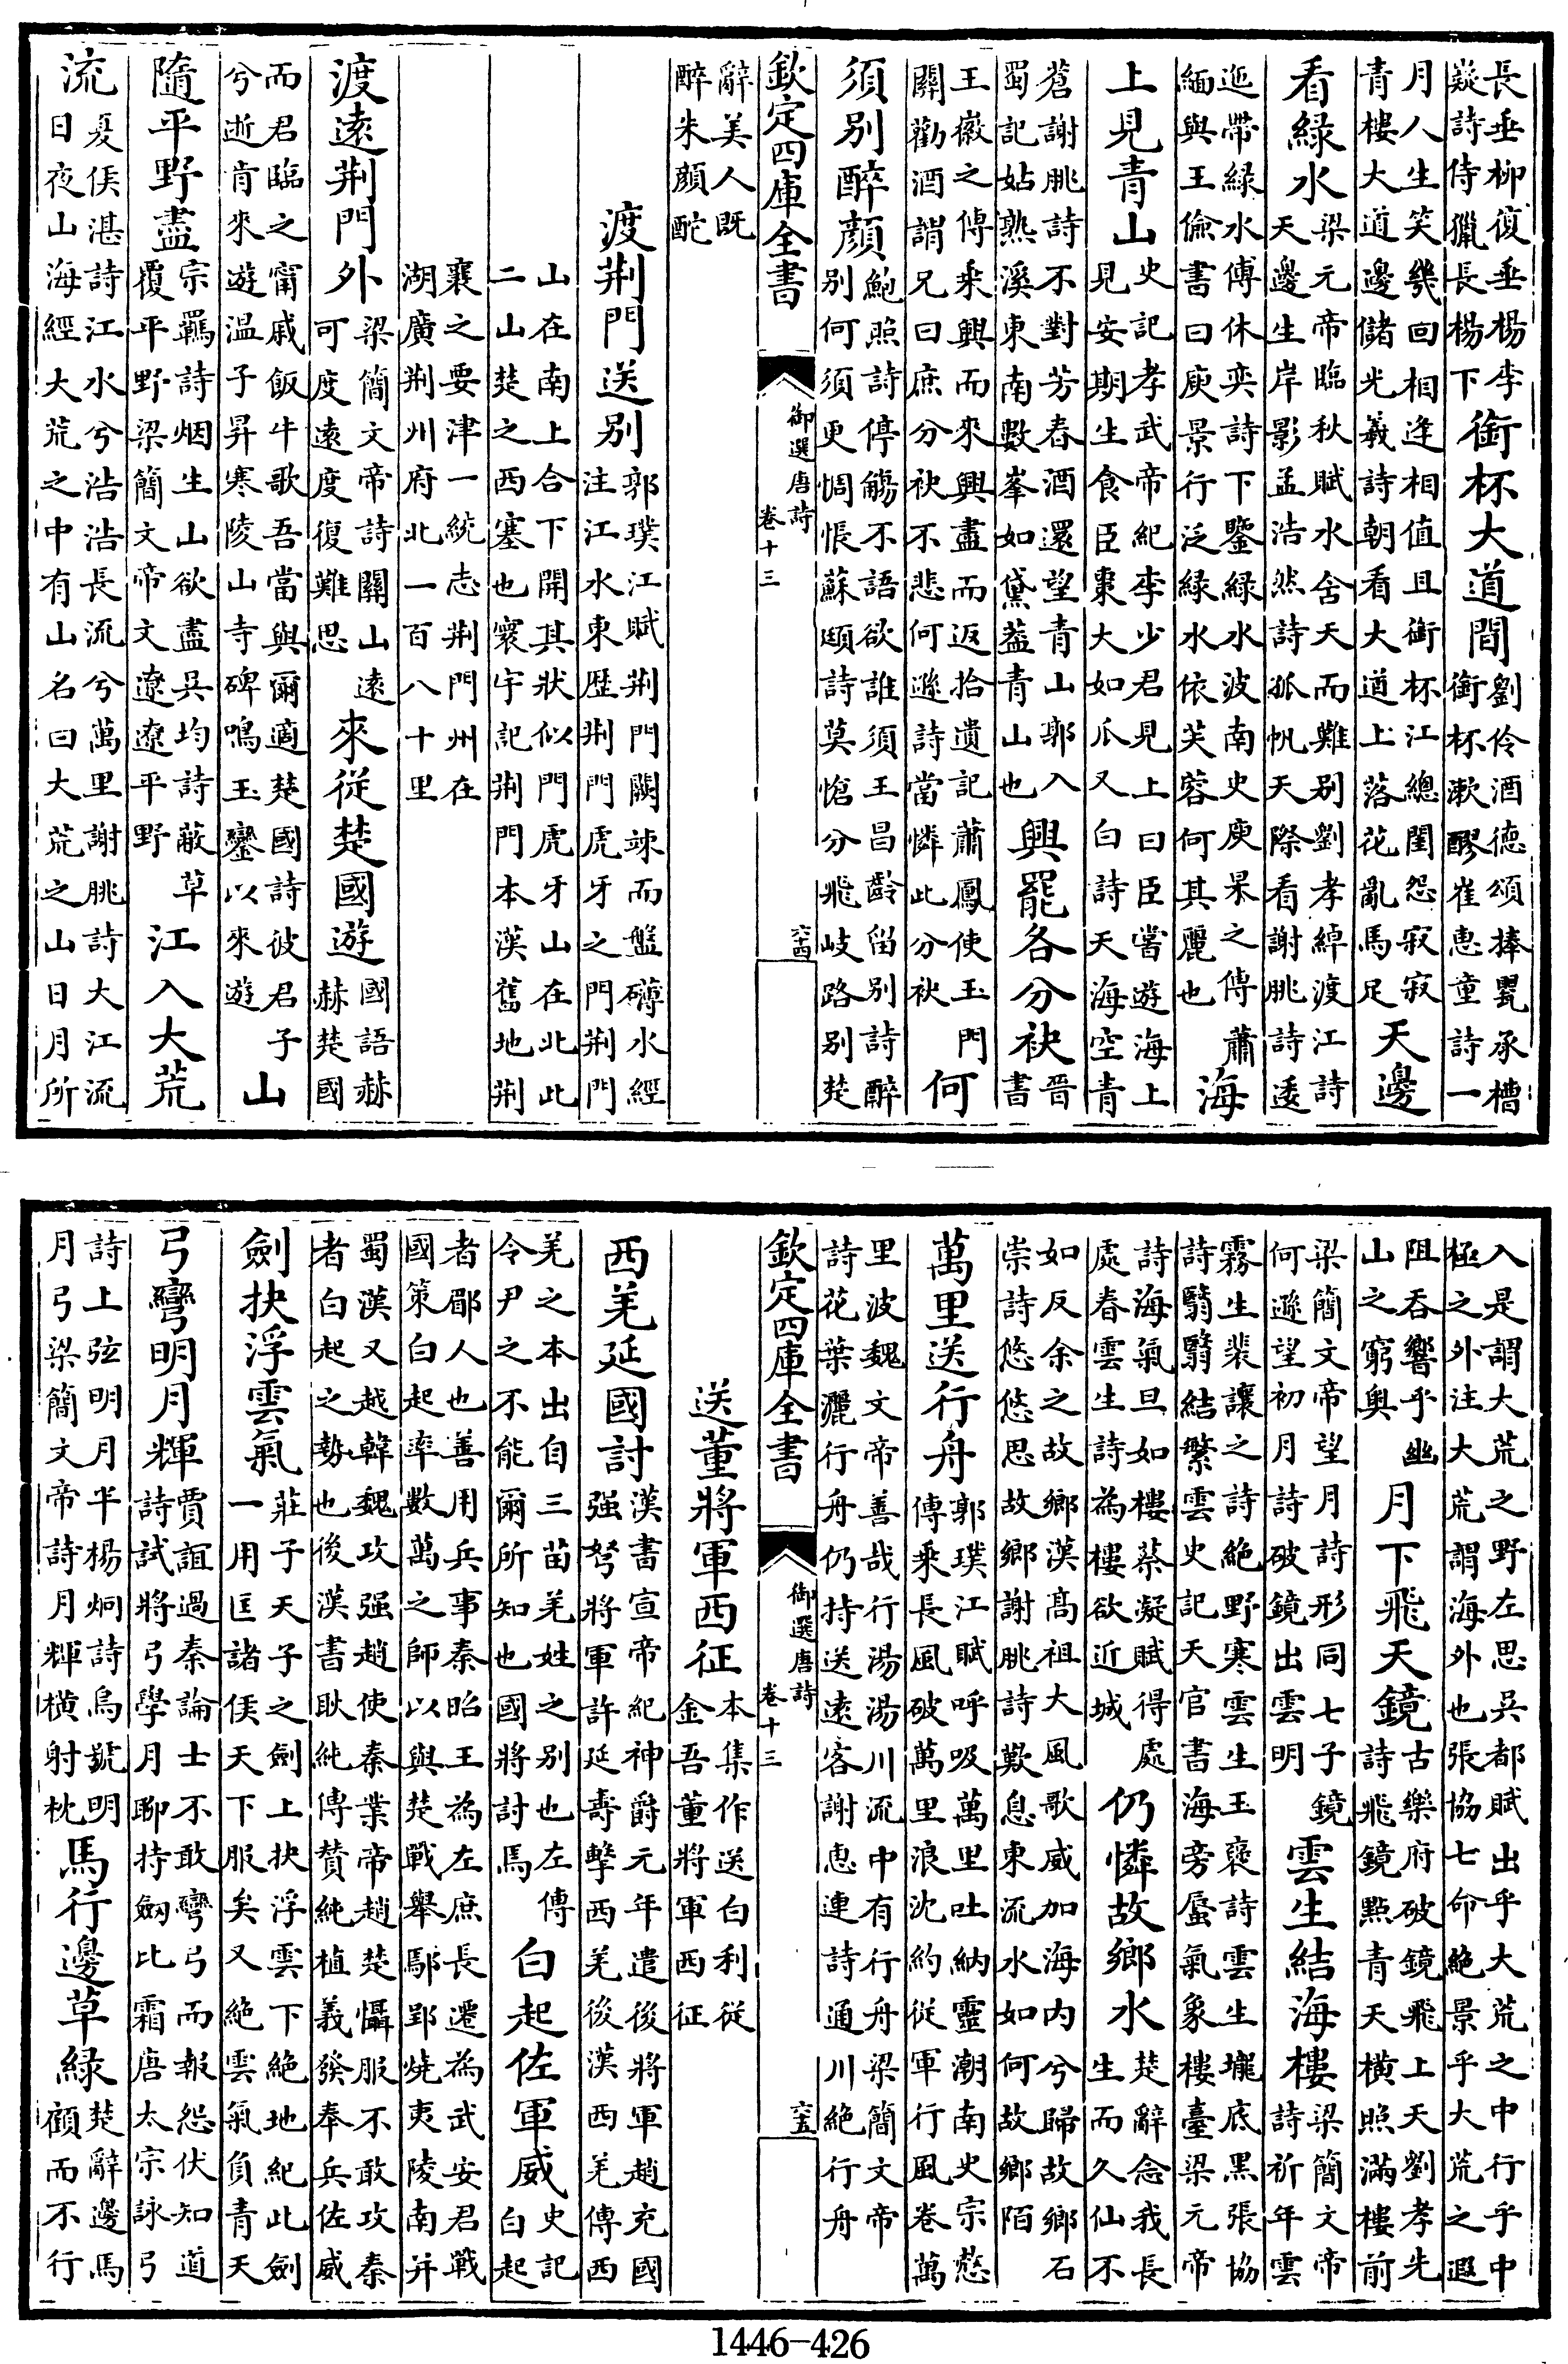 長垂柳復垂楊李
嶷詩侍獵長楊下銜杯大道間劉伶酒德頌捧甖承槽
銜杯漱醪崔惠童詩一
月人生笑幾回相逢相值且銜杯江總閨怨寂寂
青樓大道邊儲光羲詩朝看大道上落花亂馬足天邊
看綠水梁元帝臨秋賦水含天而難别劉孝綽渡江詩
天邊生岸影孟浩然詩孤帆天際看謝朓詩逶
迤帶綠水傅休奕詩下鑒綠水波南史庾杲之傳蕭
緬與王儉書曰庾景行泛綠水依芙蓉何其麗也海
上見青山史記孝武帝紀李少君見上曰臣嘗遊海上
見安期生食臣棗大如瓜又白詩天海空青
蒼謝朓詩不對芳春酒還望青山郭入
蜀記姑熟溪東南數峯如黛葢青山也興罷各分袂晉書
王徽之傳乘興而來興盡而返拾遺記蕭鳳使玉門
關勸酒謂兄曰庶分袂不悲何遜詩當憐此分袂何
須别醉顔鮑照詩停觴不語欲誰須王昌齡留别詩醉
别何須更惆悵蘇頲詩莫愴分飛岐路别楚
欽定四庫全書
御選唐詩
卷十三
六十四
辭美人既
醉朱顔酡
渡荆門送别郭璞江賦荆門闕竦而盤礴水經
注江水東歴荆門虎牙之門荆門
山在南上合下開其狀似門虎牙山在北此
二山楚之西塞也寰宇記荆門本漢舊地荆
襄之要津一統志荆門州在
湖廣荆州府北一百八十里
渡遠荆門外梁簡文帝詩關山遠
可度遠度復難思來從楚國遊國語赫
赫楚國
而君臨之甯戚飯牛歌吾當與爾適楚國詩彼君子
兮逝肯來遊温子昇寒陵山寺碑鳴玉鑾以來遊山
隨平野盡宗羈詩烟生山欲盡吳均詩蔽草
覆平野梁簡文帝文遼遼平野江入大荒
流夏侯湛詩江水兮浩浩長流兮萬里謝朓詩大江流
日夜山海經大荒之中有山名曰大荒之山日月所
入是謂大荒之野左思吳都賦出乎大荒之中行乎中
極之外注大荒謂海外也張協七命絶景乎大荒之遐
阻吞響乎幽
山之窮奥月下飛天鏡古樂府破鏡飛上天劉孝先
詩飛鏡點青天横照滿樓前
梁簡文帝望月詩形同七子鏡
何遜望初月詩破鏡出雲明雲生結海樓梁簡文帝
詩祈年雲
霧生裴讓之詩絶野寒雲生王襃詩雲生壠底黑張協
詩翳翳結繁雲史記天官書海旁蜃氣象樓臺梁元帝
詩海氣旦如樓蔡凝賦得處
處春雲生詩為樓欲近城仍憐故鄉水楚辭念我長
生而久仙不
如反余之故鄉漢髙祖大風歌威加海内兮歸故鄉石
崇詩悠悠思故鄉謝朓詩歎息東流水如何故鄉陌
萬里送行舟郭璞江賦呼吸萬里吐納靈潮南史宗慤
傳乘長風破萬里浪沈約從軍行風卷萬
里波魏文帝善哉行湯湯川流中有行舟梁簡文帝
詩花葉灑行舟仍持送遠客謝惠連詩通川絶行舟
欽定四庫全書
御選唐詩
卷十三
六十五
送董將軍西征本集作送白利從
金吾董將軍西征
西羌延國討漢書宣帝紀神爵元年遣後將軍趙充國
强弩將軍許延壽擊西羌後漢西羌傳西
羌之本出自三苗羌姓之别也左傳
令尹之不能爾所知也國將討馬白起佐軍威史記
白起
者郿人也善用兵事秦昭王為左庶長遷為武安君戰
國策白起率數萬之師以與楚戰舉鄢郢燒夷陵南并
蜀漢又越韓魏攻强趙使秦業帝趙楚懾服不敢攻秦
者白起之勢也後漢書耿純傳贊純植義發奉兵佐威
劍抉浮雲氣莊子天子之劍上抉浮雲下絶地紀此劍
一用匡諸侯天下服矣又絶雲氣負青天
弓彎明月輝賈誼過秦論士不敢彎弓而報怨伏知道
詩試將弓學月聊持劔比霜唐太宗詠弓
詩上弦明月半楊炯詩烏號明
月弓梁簡文帝詩月輝横射枕馬行邊草緑楚辭邊馬
顧而不行
1446-426